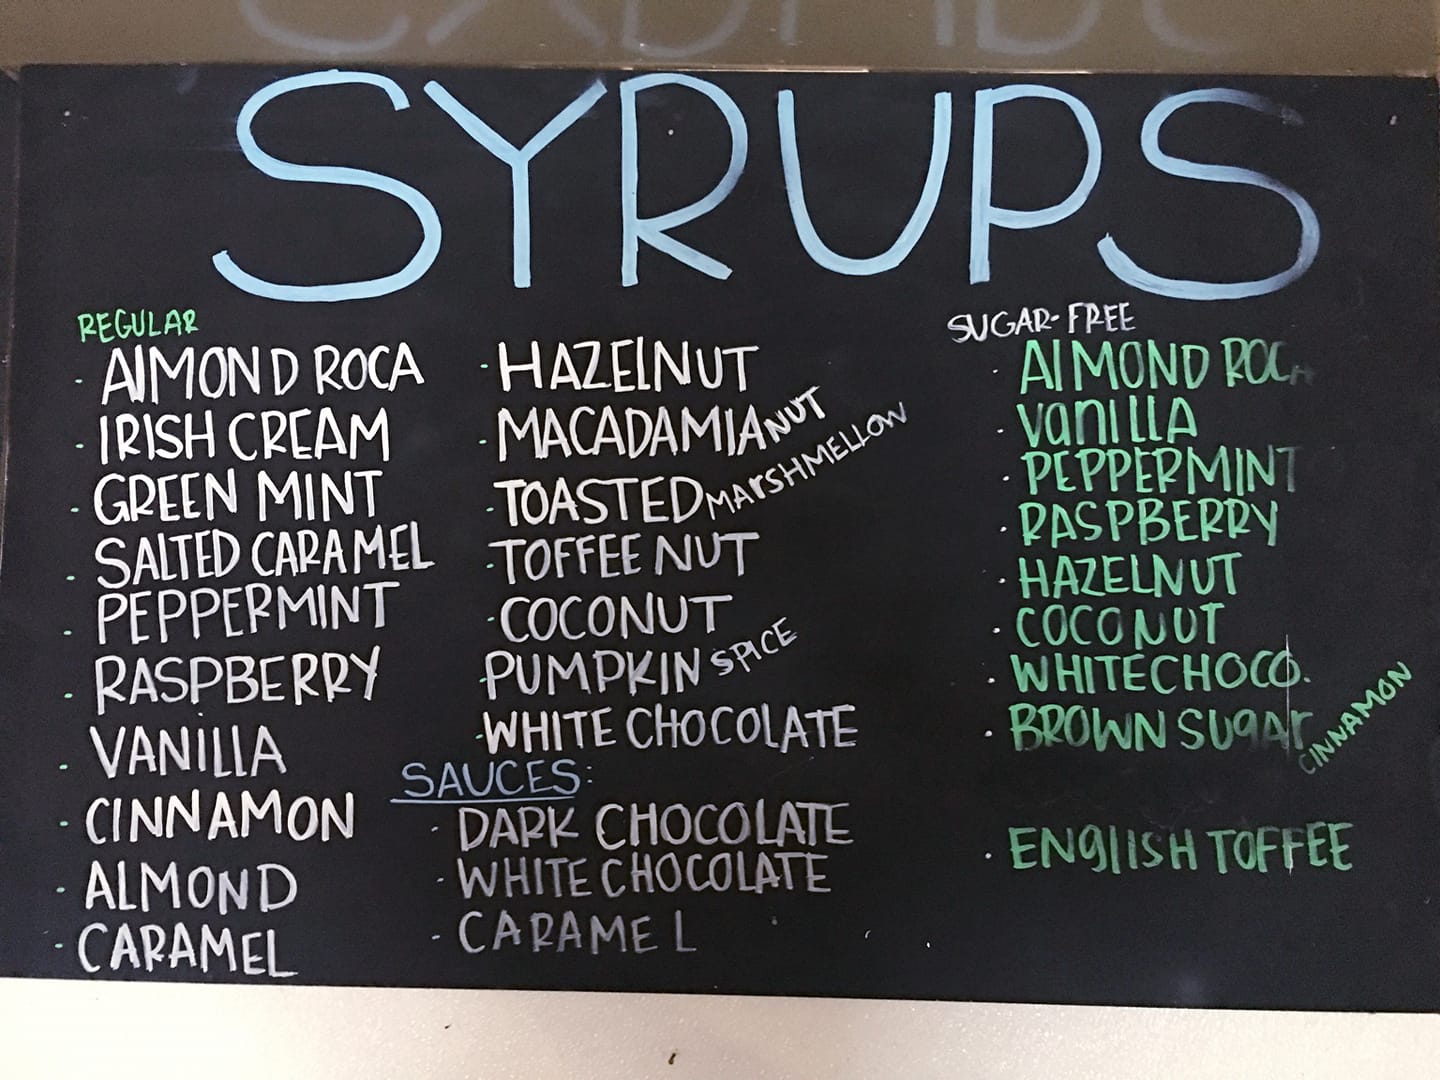 SYRUPS
REGULAR
· AlMOND ROCA
· IRISH CREAM
· GREEN MINT
· SALTED CARAMEL
· PEPPERMINT
· RASPBERRY
· VANillA
· CINNAMON
· ALMOND
· CARAMEL
· HAZElNUT
· MACADAMIA NUT
· TOASTED MArSHMELLOW
· TOFFEE NUT
· COCONUT
· PUMPKIN SPICE
· WHITE CHOCOLATE
SAUCES:
· DARK CHOCOLATE
· WHITE CHOCOLATE
· CARAMEL
SUGAR-FREE
· AlMOND ROCA
· VanillA
· PEPPERMINT
· RASPBERRY
· HAZELNUT
· COCONUT
· WHITE CHOCO.
· BROWN SUGAr CINNAMON
· ENGlISH TOFFEE